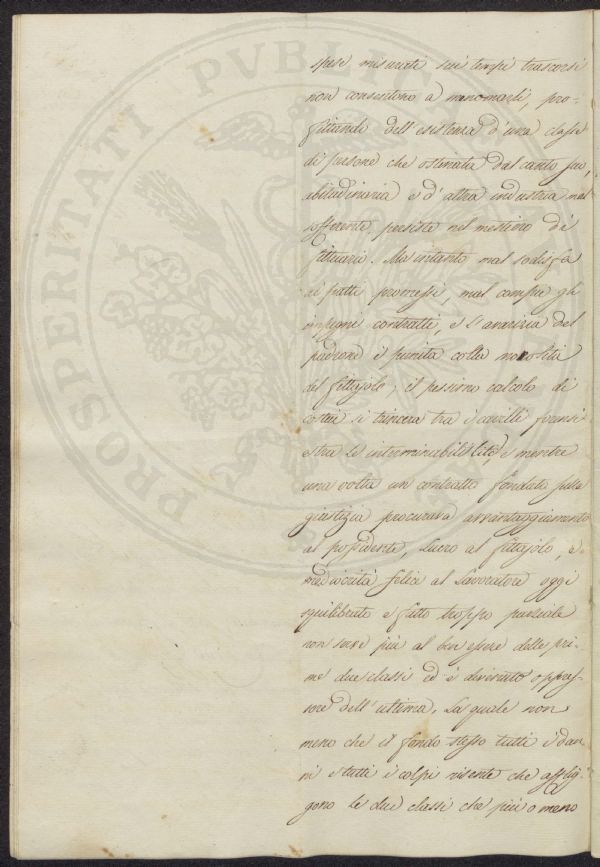 PROSPERITATI PVBLI
spese misurati sui tempi trascorsi
non consentono a menomarli, pro-
fittando dell'esistenza d'una classe
di persone che ostinata dal canto suo,
abitudinaria e d'altra industria mal
sofferente, persiste nel mestiero de
fittuari. Ma intanto mal sodisfa
ai patti promessi, mal compie gli
impegni contratti, e l'avarizia del
padrone è punita colla
del fittajolo; il pessimo calcolo di
costui si trincera tra i cavilli forensi
e tra le interminabili liti, e mentre
una volta un contratto fondato sulla
giustizia procurava avvantaggiamento
al possidente, lucro al fittajolo, e
mediocrità felice al lavoratore oggi
squilibrato e fatto troppo parziale
non serve più al ben essere delle pri-
me due classi ed è divenuto oppres-
sore dell'ultima. La quale non
meno che il fondo stesso tutti i dan-
ni e tutti i colpi risente che afflig-
gono le due classi che più o meno